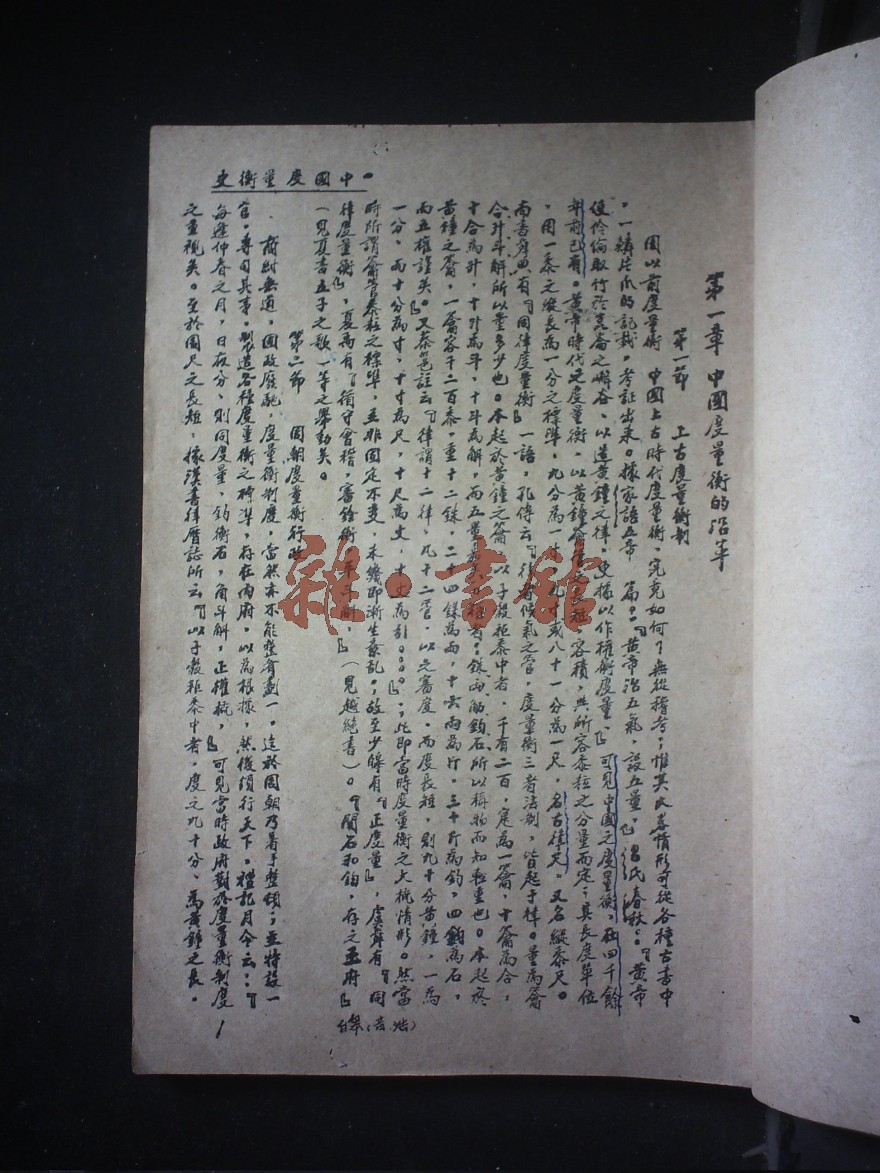 第一章 中國度量衡的沿革
第一節 上古度量衡制
周以前度量衡 中國上古時代度量衡、究竟如何、無從稽考；惟其氏甚情形可從各種古書中
，一鱗片爪的記載。考証出來。據家語五帝 篇。：『黃帝治五氣，設五量，』呂氏春秋。：『黃帝
使伶倫取竹於崑崙之嶰谷、以造黃鐘之律、更據以作權衡度量、』可見中國之度量衡，在四千餘
年前已有。黃帝時代之度量衡。以黃鐘龠管之長短、容積，與所容黍粒之分量而定；其長度單位
，用一黍之縱長為一分之標準。九分為一寸、九寸或八十一分為一尺，名古律尺。又名縱黍尺。
尚書舜典有『同律度量衡』一語，孔傳云『律者候氣之管，度量衡三者法制，皆起于律。量為龠
合升斗斛所以量多少也。本起於黃鐘之龠，以子穀秬黍中者，千有二百，寔為一龠，十龠為合，
十合為升，十升為斗，十斗為斛，而五量嘉矣。權者：銖兩觔鈞石所以稱物而知輕重也。本起於
黃鐘之龠，一龠容千二百黍，重十二銖，二十四銖為兩，十六兩為斤，三十斤為鈞，四鈞為石，
而五權謹矣。又蔡邕註云『律謂十二律，凡十二管，以之審度，而度長短，則九十分黃鐘，一為
一分，而十分為寸，十寸為尺，十尺為丈，十丈為引。。。。』；此即當時度量衡之大概情形。然當
時所謂龠管黍粒之標準，並非固定不變，未幾即漸生紊乱。；故至少皞有『正度量』，虞舜有『同(若諧)
律度量衡』，夏禹有『循守會稽，審銓衡、平斗斛，』(見越絕書)。『關石和鈞，存之王府』
(見夏書五子之歌一等之舉動矣。
第二節 周朝度量衡行政
商紂無道，國政廢弛，度量衡制度，當然亦不能整齊劃一。迨於周朝乃着手整頓；並特設一
官。專司其事。製造各種度量衡之標準，存在內府，以為根據，然後頒行天下。禮記月令云：：『
每逢仲春之月，日夜分、則同度量、鈞衡石，角斗斛，正權概，』可見當時政府對於度量衡制度
之重視矣。至於周尺之長短，據漢書律曆誌所云『以子穀秬黍中者，度之九十分、為黃鐘之長。
中國度量衡史
1
雜·書館